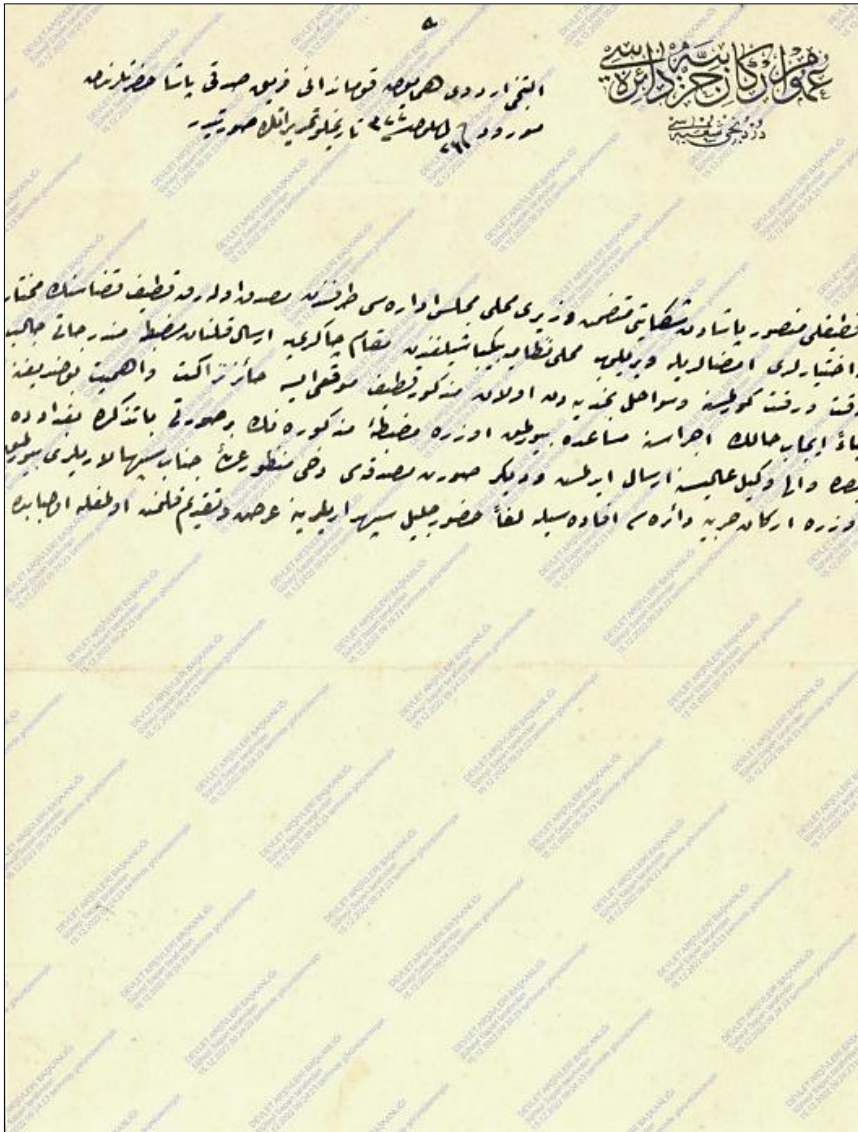 عموم اركان حربيه دائره سى
دردنجى شعبه سى
التنجى اردوى همايون قومانداناى فريق صدقى پاشا حضرتلرندن
مورود تاريخلو تحريراتك صورتيدر
قطيفلى منصور پاشادن شكايتى متضمن و زيرى محلى مجلس اداره سى طرفندن مصدق اوله رق قطيف قضاسنك مختار
واختيارلرى امضالريله ويريلوب محلى نظاميه بيكباشيلغندن مقام چاكرى يه ارسال قلنان مضبطه مندرجاتى جالب
دقت ورقت كورلمش وسواحل نجديه دن اولان مذكور قطيف موقعى ايسه حائز نزاكت واهميت بولنديغندن
بناءً ايجاب حالك اجراسنه مساعده بيورلمق اوزره مضبطۀ مذكوره نك بر صورتى باتذكره بغداده
والى وكيل عاليسنه ارسال ايدلمش وديكر صورت مصدقه سى دخى منظور جناب سپهسالاريلرى بيورلمق
اوزره اركان حربيه دائره سى افاده سيله لفاً حضور جليل سپهداريلرينه عرض وتقديم قلنمش اولمغله اولبابده
DEVLET ARŞİVLERİ BAŞKANLIĞI